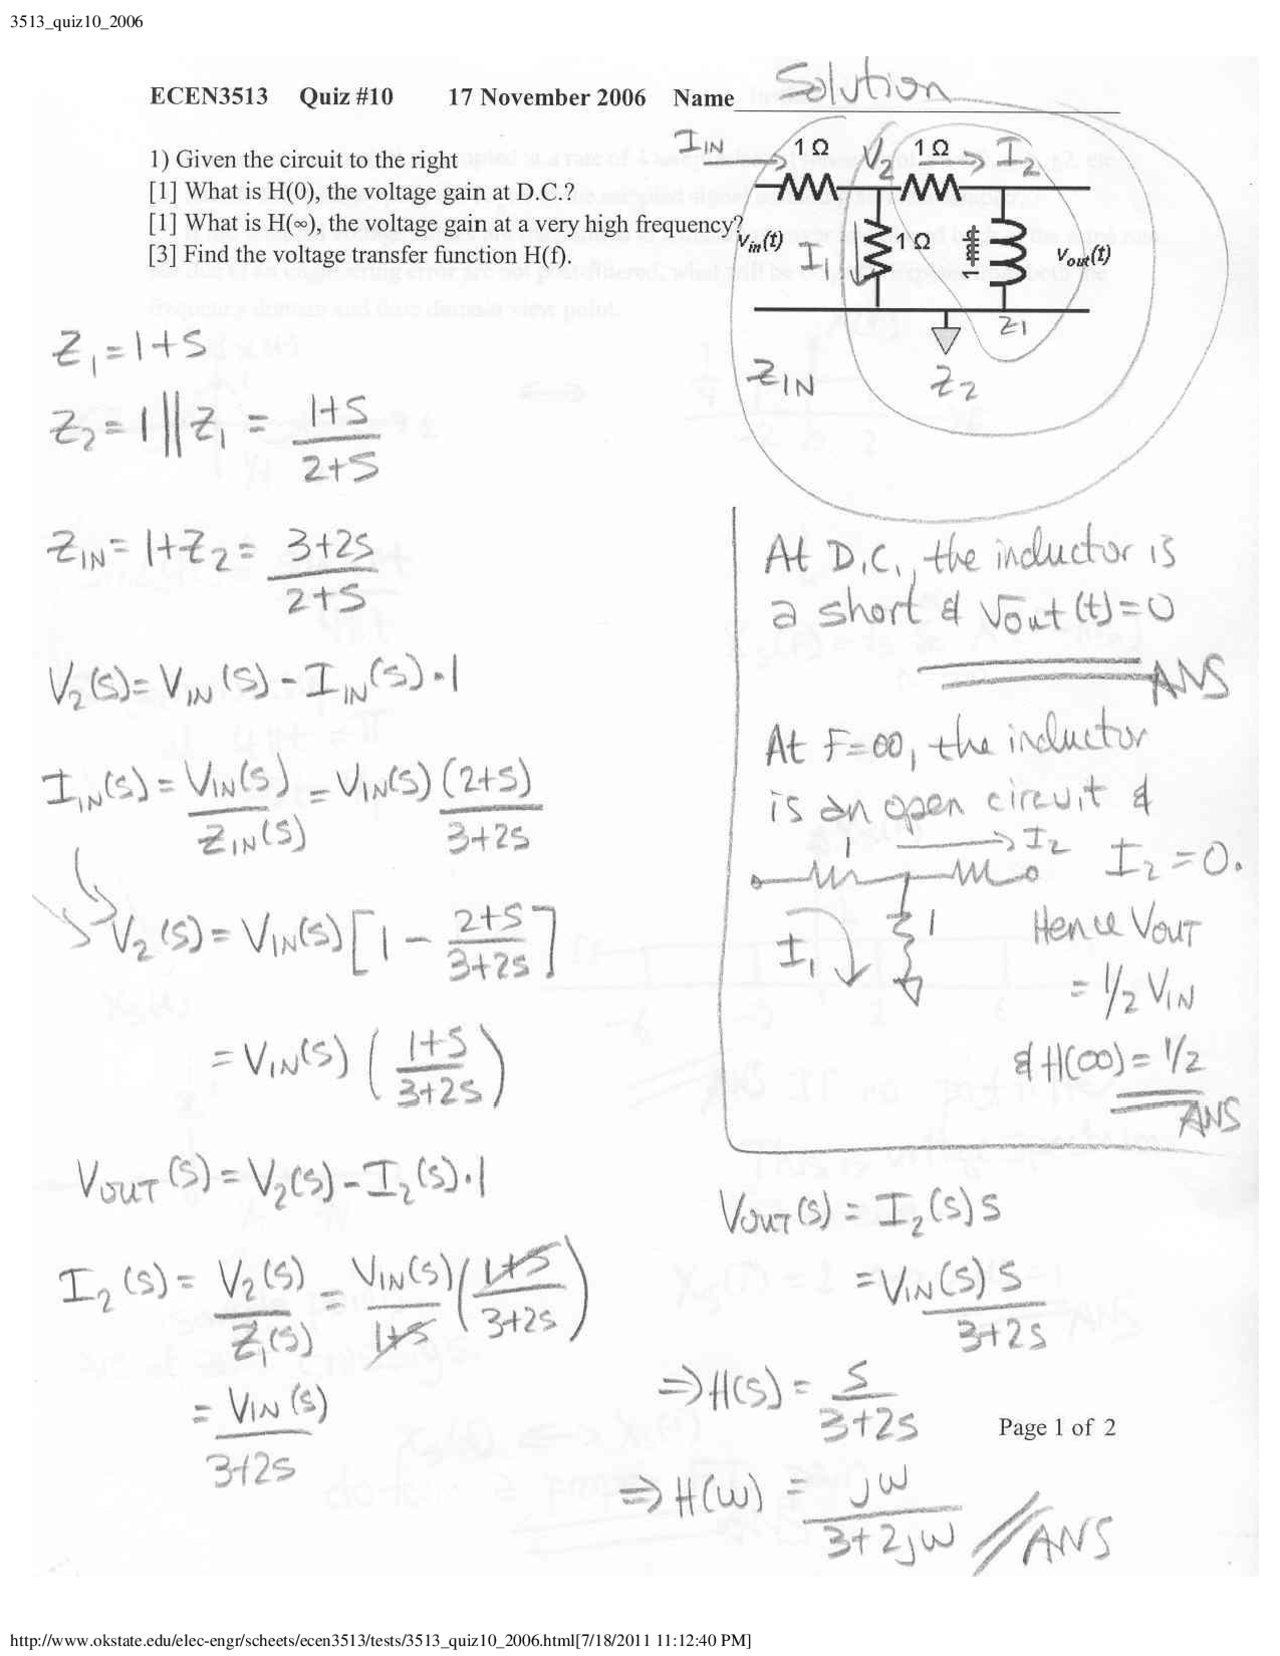 3513_quiz10_2006
ECEN3513 Quiz #10 17 November 2006 Name Solution
1) Given the circuit to the right
[1] What is H(0), the voltage gain at D.C.?
[1] What is H(∞), the voltage gain at a very high frequency?
[3] Find the voltage transfer function H(f).
I_IN 1 Ω V_2 1 Ω I_2
v_in(t) I_1 1 Ω v_out(t)
Z_1
Z_IN Z_2
Z_1 = 1+S
Z_2 = 1 || Z_1 = (1+S)/(2+S)
Z_IN = 1+Z_2 = (3+2S)/(2+S)
V_2(S) = V_IN(S) - I_IN(S)·1
I_IN(S) = V_IN(S)/Z_IN(S) = V_IN(S) (2+S)/(3+2S)
V_2(S) = V_IN(S) [1 - (2+S)/(3+2S)]
= V_IN(S) ((1+S)/(3+2S))
V_OUT(S) = V_2(S) - I_2(S)·1
I_2(S) = V_2(S)/Z_1(S) = V_IN(S)/(1+S) ((1+S)/(3+2S))
= V_IN(S)/(3+2S)
At D.C., the inductor is
a short & v_out(t)=0
ANS
At F=∞, the inductor
is an open circuit &
1 I_2 I_2=0.
I_1 1 Hence V_OUT
= 1/2 V_IN
& H(∞) = 1/2
ANS
V_OUT(S) = I_2(S) S
= V_IN(S) S/(3+2S)
⇒ H(S) = S/(3+2S)
⇒ H(ω) = jω/(3+2jω) // ANS
Page 1 of 2
http://www.okstate.edu/elec-engr/scheets/ecen3513/tests/3513_quiz10_2006.html[7/18/2011 11:12:40 PM]